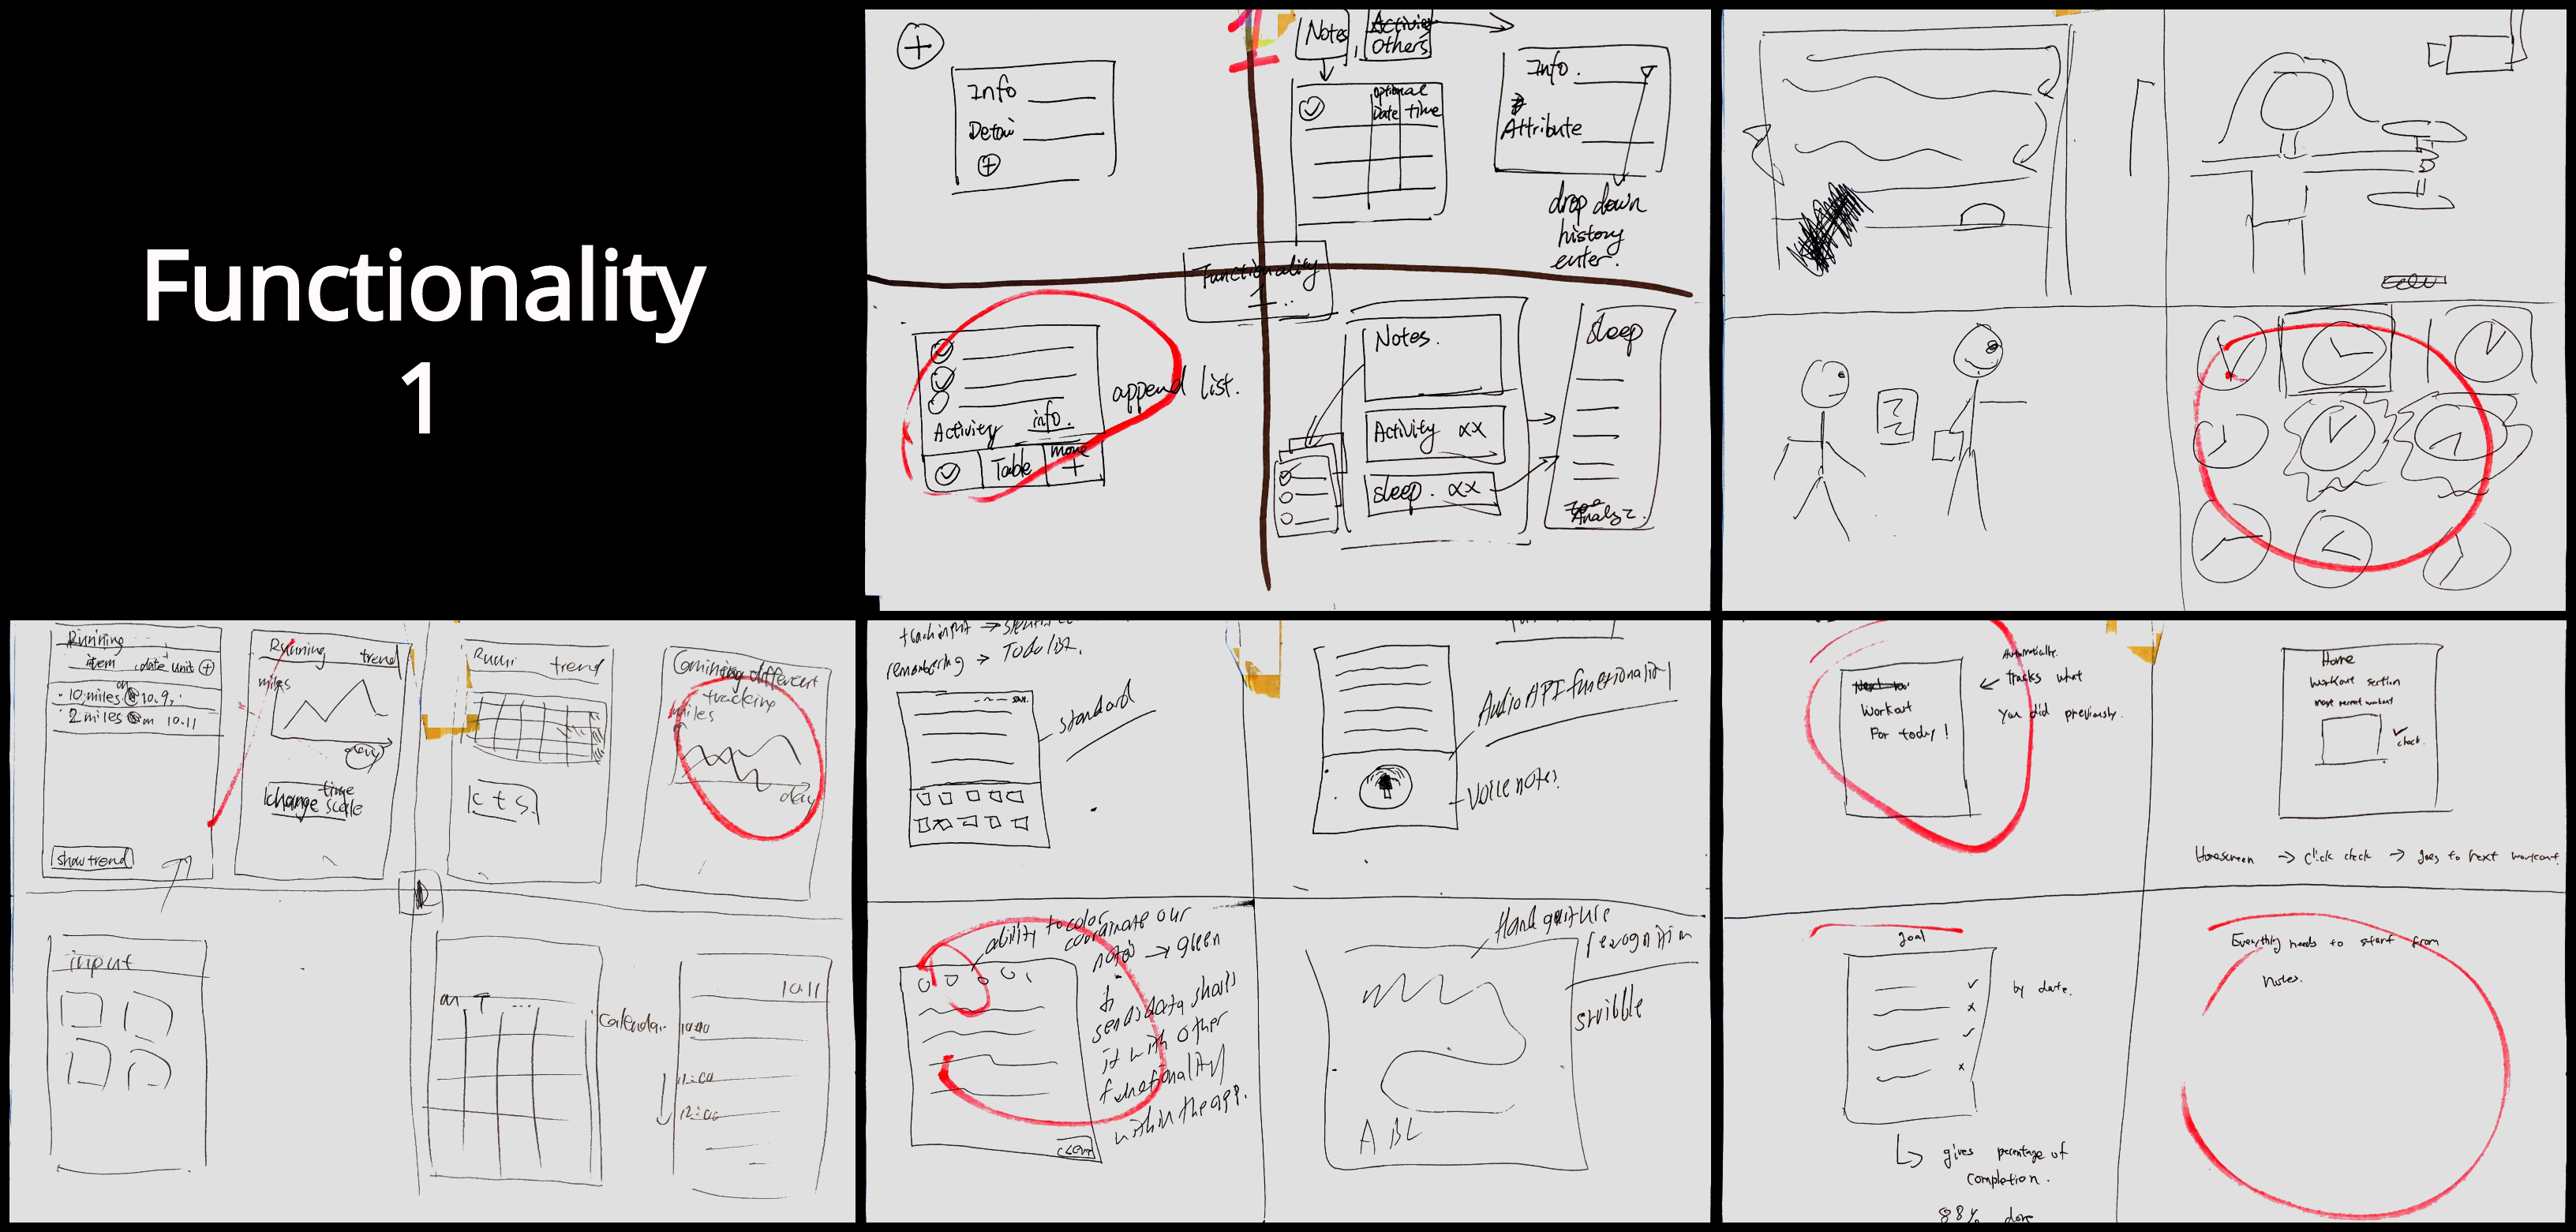 Functionality
1
Info
Detai
Notes,
Others
optional
Date time
Info.
Attribute
drop down
history
enter.
Functionality
append list.
Activity info.
Table
more
+
Notes.
Activity xx
sleep. xx
sleep
Analyz.
Running
item date unit +
- 10 miles on 10.9,
- 2 miles on 10.11
show trend
Running trend
miles
day
change time scale
Runni trend
c t s.
Comining different
tracking
miles
day
input
calendar.
10.11
10:00
11:00
12:00
remembering → Todo list.
standard
Audio API functionality
Voice notes.
ability to color
coordinate our
notes → green
sends data shares
it with other
functionality
within the app.
Hand gesture
recognition
scribble
A B C
Workout
For today!
Automatically
tracks what
you did previously.
Home
Workout section
most recent workout
check.
Homescreen → click check → goes to next workout
goal
by date.
gives percentage of
completion.
88% done
Everything needs to start from
Notes.